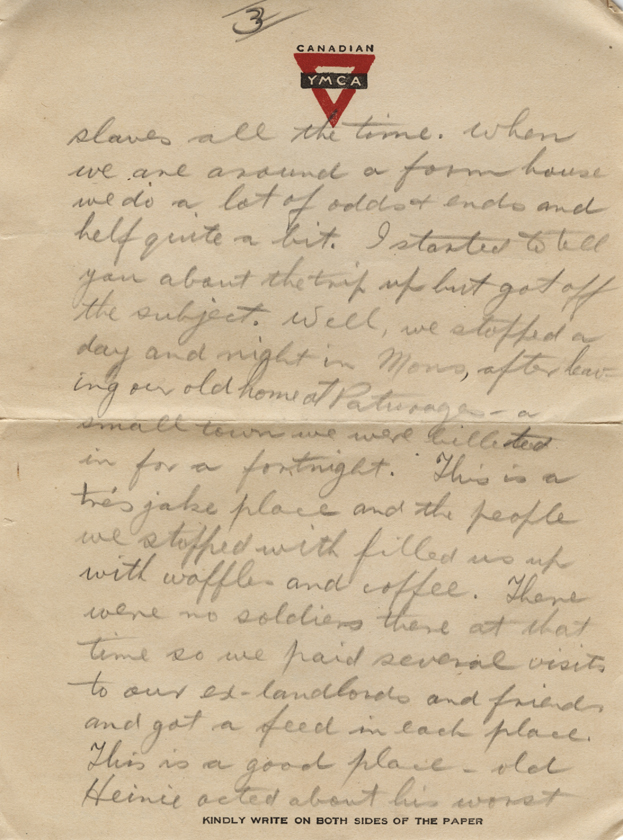 3
CANADIAN
YMCA
slaves all the time. When
we are around a farm house
we do a lot of odds & ends and
help quite a bit. I started to tell
you about the trip up but got off
the subject. Well, we stopped a
day and night in Mons, after leav-
ing our old home at Paturages - a
small town we were billeted
in for a fortnight. This is a
très jake place and the people
we stopped with filled us up
with waffles and coffee. There
were no soldiers there at that
time so we paid several visits
to our ex-landlords and friends
and got a feed in each place.
This is a good place - old
Heinie acted about his worst
KINDLY WRITE ON BOTH SIDES OF THE PAPER